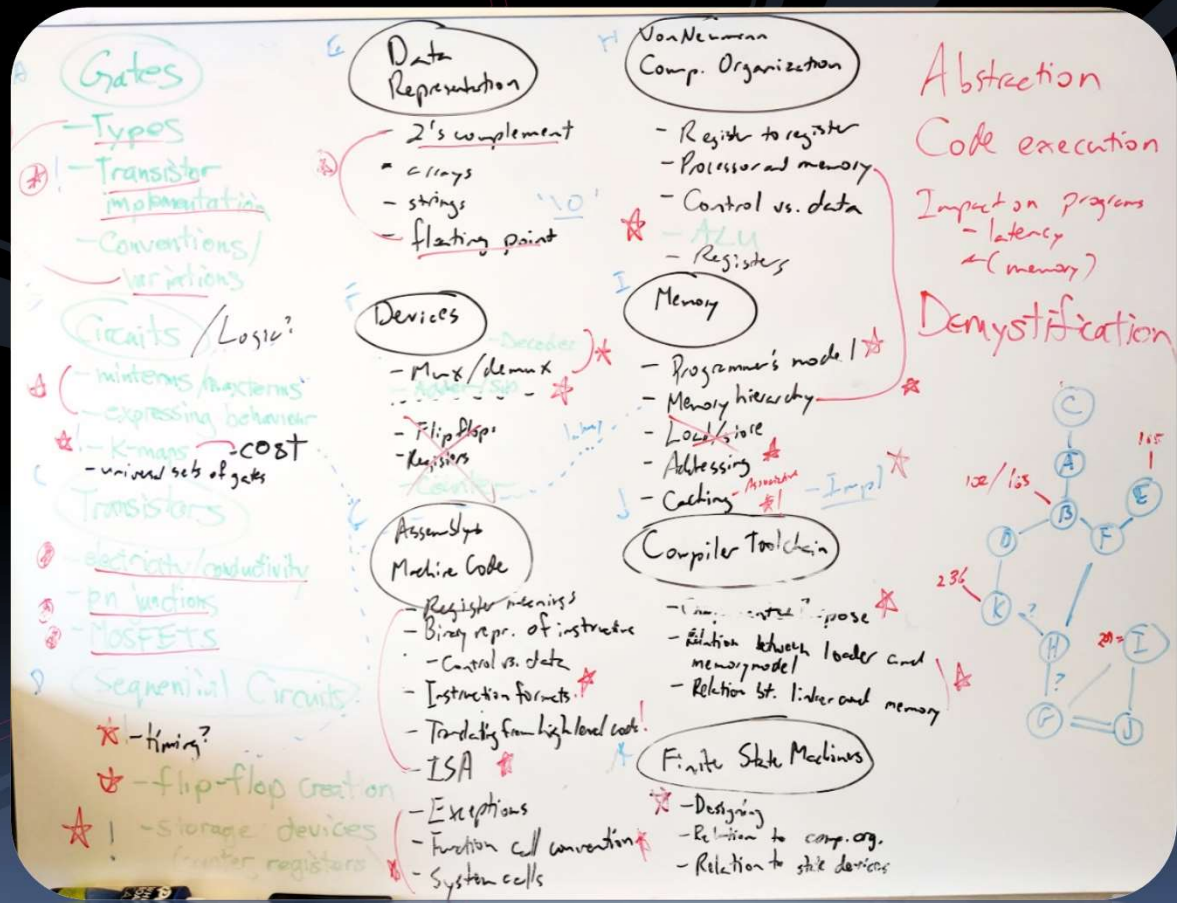 A
Gates
- Types
! - Transistor
implementation
- Conventions/
variations
Circuits /Logic?
- minterms/maxterms
- expressing behaviour
! - K-maps - COST
- universal sets of gates
C
Transistors
- electricity/conductivity
- pn junctions
- MOSFETS
D
Sequential Circuits
! - timing?
- flip-flop creation
! - Storage devices
registers
E
Data
Representation
- 2's complement
- arrays
- strings
'\0'
- floating point
F
Devices
- Decoder
- Mux/demux
- Adder/Sub
- Flip flops
- Registers
- Counter
G
Assembly
Machine Code
- Register meanings
- Binary repr. of instructive
- Control vs. data
- Instruction formats
- Translating from high level code!
- ISA
- Exceptions
- Function call convention
- System calls
H
Von Neumann
Comp. Organization
- Register to register
- Processor and memory
- Control vs. data
- ALU
- Registers
I
Memory
- Programmer's model
- Memory hierarchy
- Load/store
- Addressing
- Caching - Associative
- Impl
J
Compiler Toolchain
- pose
- Relation between loader and
memory model
- Relation bt. linker and memory
K
Finite State Machines
- Designing
- Relation to comp. org.
- Relation to state devices
Abstraction
Code execution
Impact on programs
- latency
- (memory)
Demystification
C
A
165
E
B
F
D
236
K
?
H
I
?
G
J